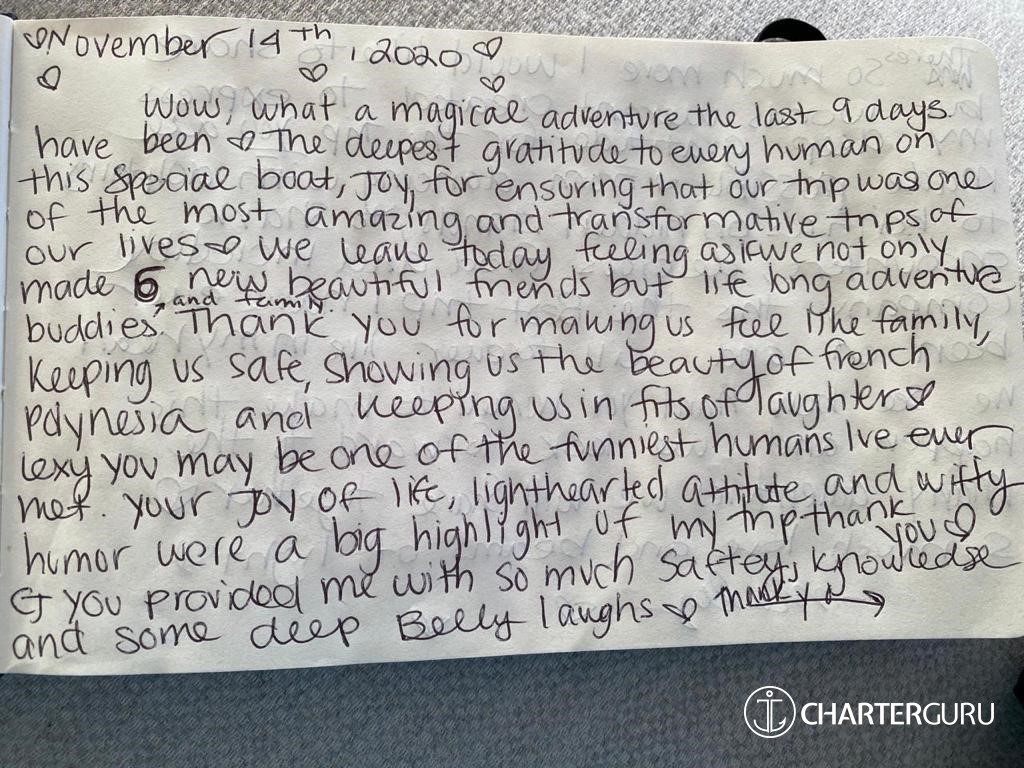 ♡November 14th, 2020♡
♡ ♡ ♡
Wow, what a magical adventure the last 9 days.
have been ♡ The deepest gratitude to every human on
this special boat, Joy, for ensuring that our trip was one
of the most amazing and transformative trips of
our lives♡ We leave today feeling as if we not only
made 6 new beautiful friends but life long adventure
, and family
buddies. Thank you for making us feel like family,
Keeping us safe, showing us the beauty of french
polynesia and keeping us in fits of laughter♡
lexy you may be one of the funniest humans Ive ever
met. your Joy of life, lighthearted attitute and witty
humor were a big highlight of my trip thank
you♡
CJ you provided me with so much saftey, knowledse
and some deep Belly laughs ♡ Thank you →
CHARTERGURU